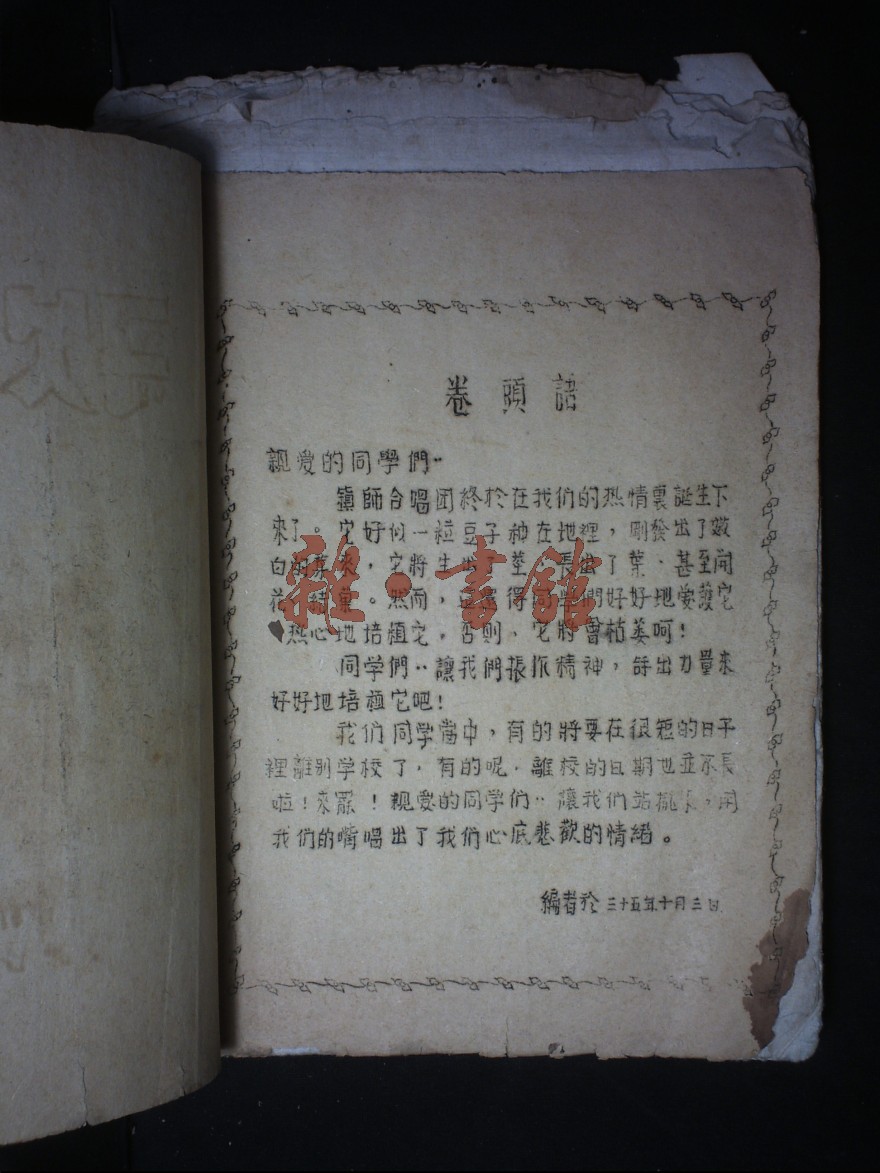 卷頭語
親爱的同學們‥
鎮師合唱团終於在我们的热情裏誕生下
來了。它好似一粒豆子种在地裡，剛發出了嫩
白的芽來，它將生出了莖，長出了葉、甚至開
花、結菓。然而，這還得同學們好好地爱護它
热心地培植它，否則、它將會枯萎呵！
同学們‥讓我們振抓精神，拿出力量來
好好地培植它吧！
我们同学當中，有的將要在很短的日子
裡離别学校了，有的呢．離校的日期也並不長
啦！來罷！親爱的同学们‥讓我们站攏來，用
我们的嘴唱出了我们心底悲歡的情緒。
編者於三十五年十月三日
雜·書館